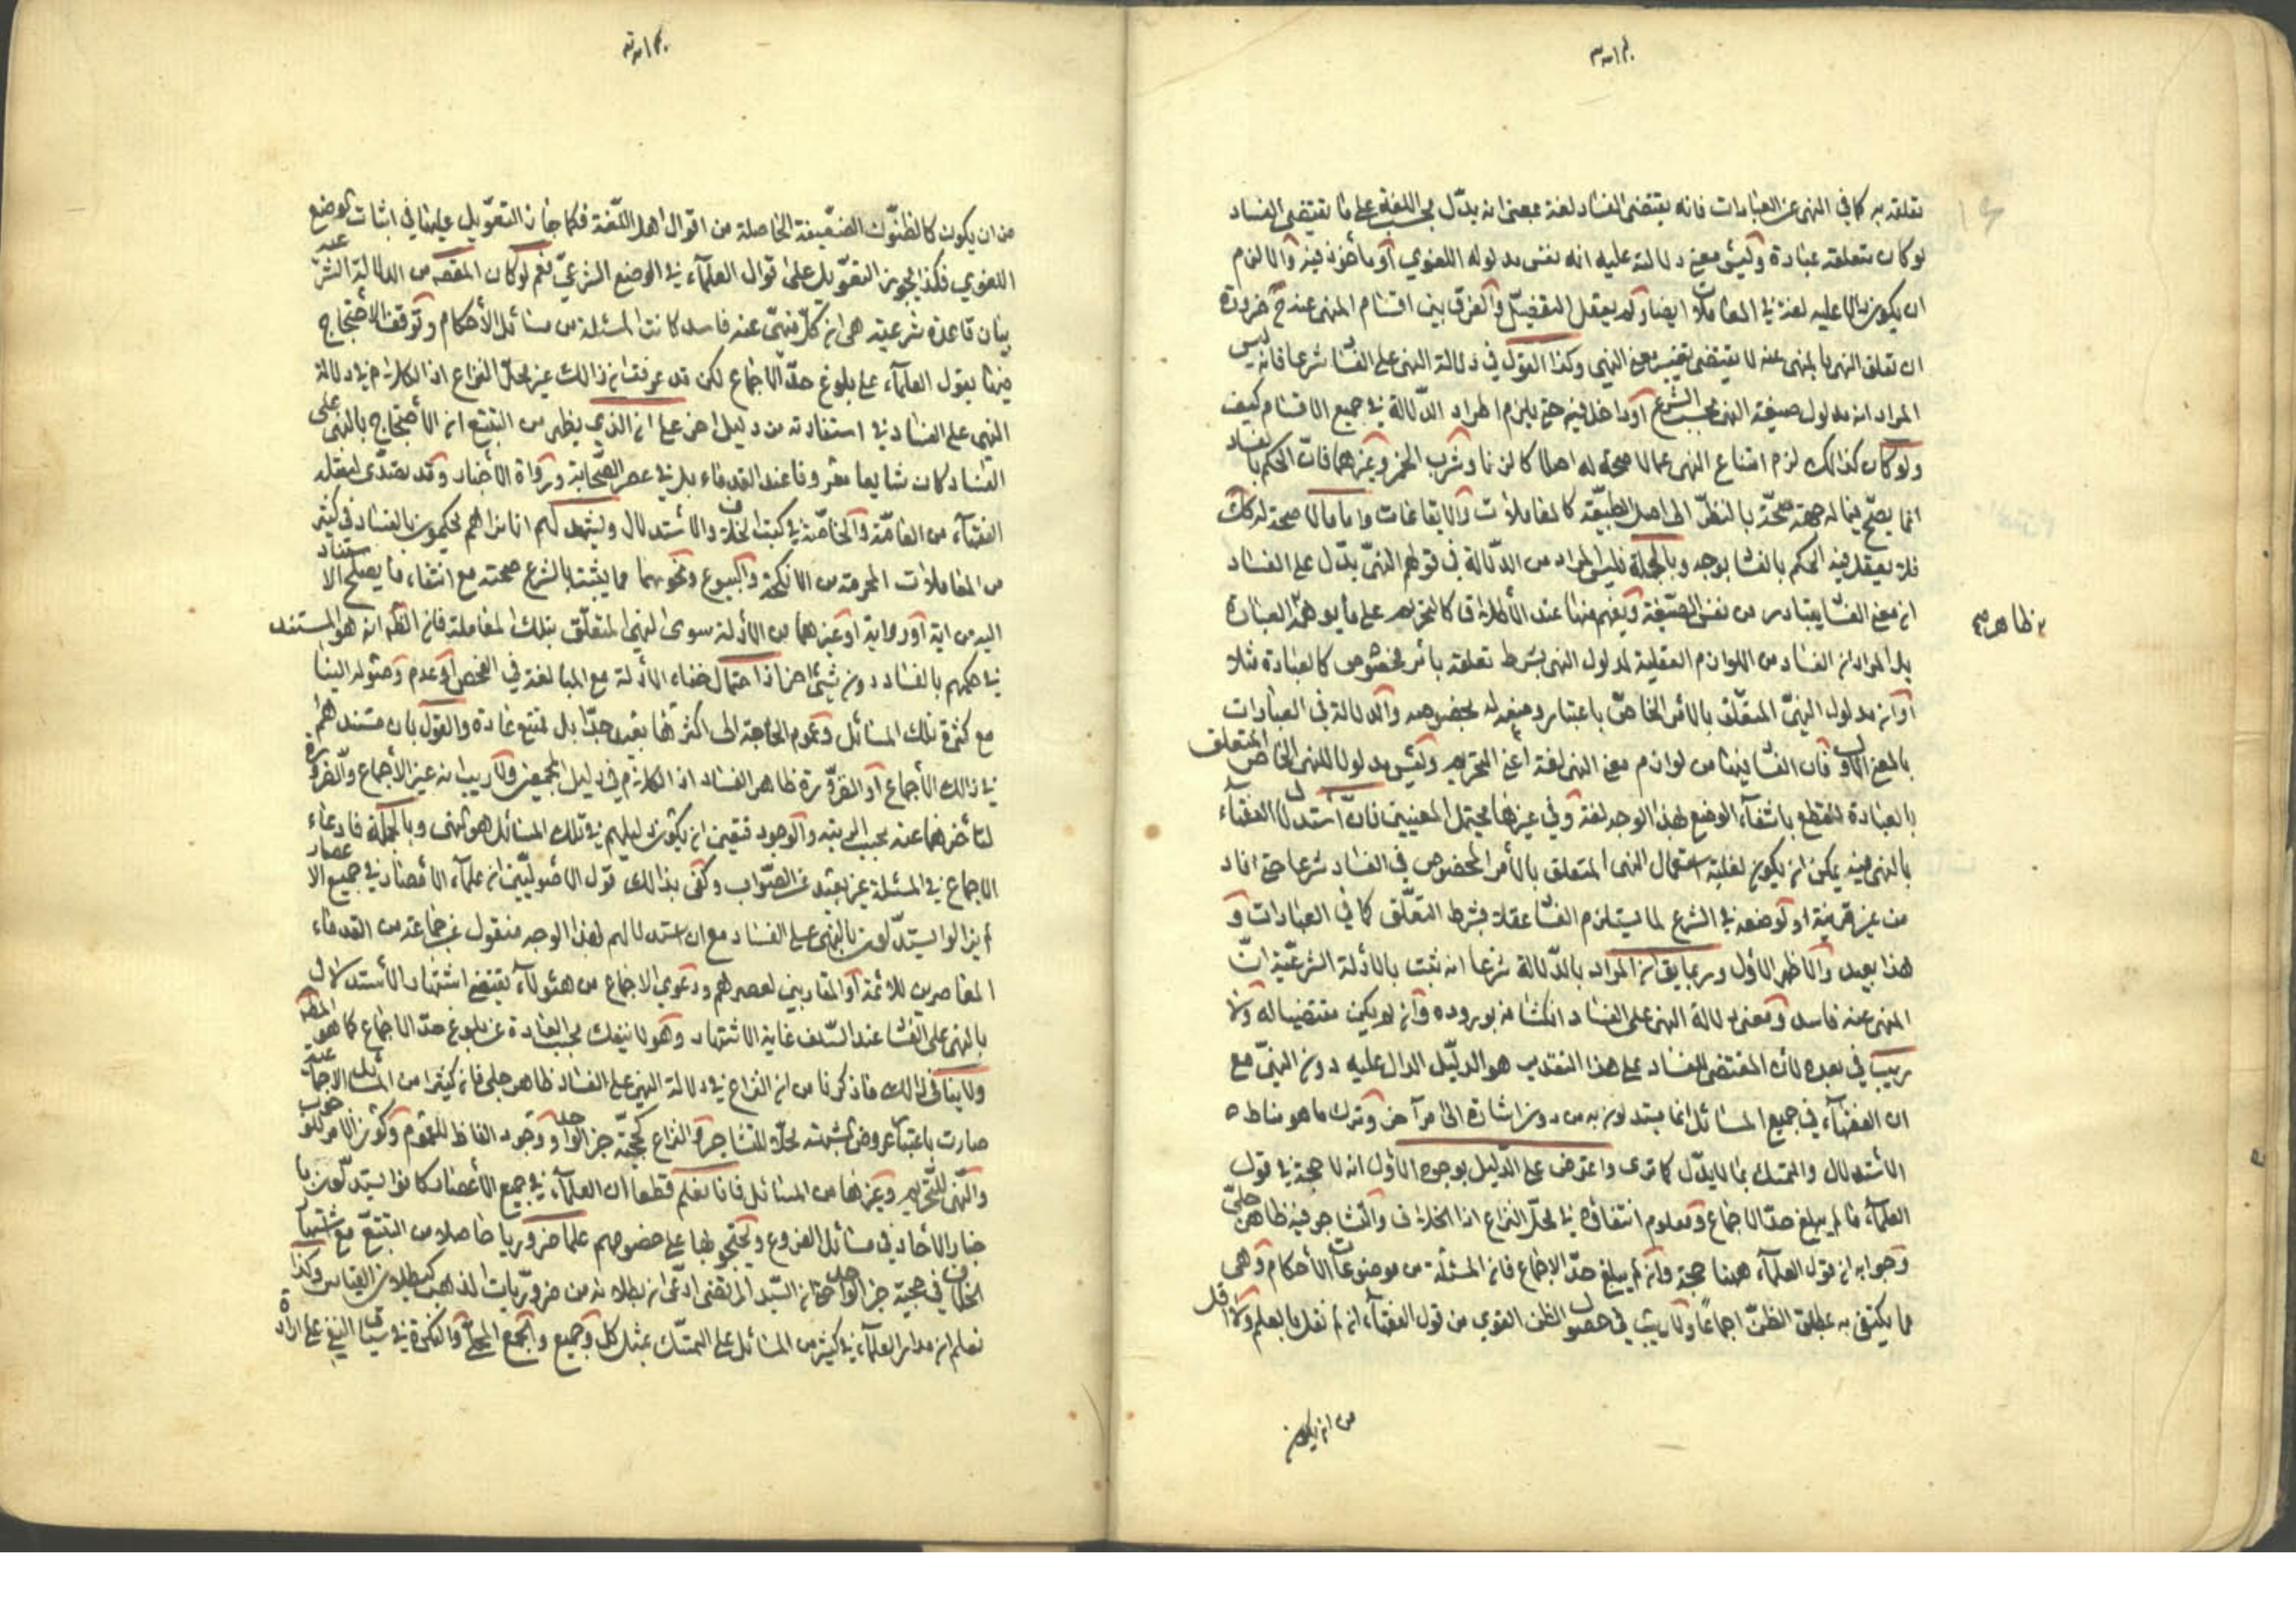 تعلقه به كما في النهى عن العبادات فانه يقتضى الفساد لغة بمعنى انه يدلّ بحسب اللغة على ما يقتضى الفساد
لو كان متعلقه عبادة وليس معنى دلالته عليه انه نفس مدلوله اللغوي أو مأخوذ فيه والا لزم
ان يكون دالا عليه لغة في المعاملات ايضا ولم يعقل التفصيل والفرق بين اقسام المنهى عنه ح ضرورة
ان تعلق النهى بالمنهى عنه لا يقتضى تغيير معنى النهى وكذا القول في دلالة النهى على الفساد شرعا فانه ليس
المراد انه مدلول صيغة النهى بحسب الشرع أو داخل فيه حتى يلزم اطراد الدلالة في جميع الاقسام كيف
ولو كان كذلك لزم امتناع النهى عما لا صحة له اصلا كالزنا وشرب الخمر وغيرهما فان الحكم بالفساد
انما يصح فيما له جهة صحّة بالنظر الى اصل الطبيعة كالمعاملات والايقاعات واما ما لا صحة له كك
فلا يعقل فيه الحكم بالفساد بوجه وبالجملة فليس المراد من الدّلالة في قولهم النهى يدّل على الفساد
ان معنى الفساد يتبادر من نفس الصيغة ويفهم منها عند الأطلاق كالتحريم على ما يوهمه العبارة
ظاهر صح
بل المراد ان الفساد من اللوازم العقلية لمدلول النهى بشرط تعلقه بامر مخصوص كالعبادة مثلا
أو انه مدلول النهى المتعلق بالامر الخاص باعتبار وضعه له بخصوصه والدلالة في العبادات
بالمعنى الاول فان الفساد فيها من لوازم معنى النهى لغة أعنى التحريم وليس مدلولا للنهى الخاص المتعلق
بالعبادة للقطع بانتفاء الوضع لهذا الوجه لغة وفي غيرها يحتمل المعنيين فان استدلال الفقهاء
بالنهى فيه يمكن ان يكون لغلبة استعمال النهى المتعلق بالأمر المخصوص في الفساد شرعا حتى افاد
من غير قرينة او لوضعه في الشرع لما يستلزم الفساد عقلا بشرط التعلّق كما في العبادات و
هذا بعيد والاظهر الاول وربما يق ان المراد بالدّلالة شرعا انه ثبت بالأدلة الشرعيّة انّ
المنهى عنه فاسد ومعنى دلالة النهى على الفساد انكشافه بوروده وان لم يكن مقتضيا له ولا
ريب في بعده لأن المقتضى للفساد على هذا التقدير هو الدليل الدال عليه دون النهى مع
ان الفقهاء في جميع المسائل انما يستدلون به من دون اشارة الى امر آخر وترك ما هو مناط
الأستدلال والتمسك بما لا يدّل كما ترى واعترض على الدّليل بوجوه الأول انه لا حجة في قول
العلماء ما لم يبلغ حدّ الاجماع ومعلوم انتفاؤه في محل النزاع اذا الخلاف والتشاجر فيه ظاهر جلىّ
وجوابه ان قول العلماء ههنا حجة وان لم يبلغ حدّ الاجماع فان المسئلة من موضوعات الأحكام وهى
مما يكتفى به بمطلق الظنّ اجماعاً ولا ريب في حصول الظن القوي من قول الفقهاء ان لم نقل بالعلم ولا اقل
من ان يكون
من ان يكون كالظنون الضعيفة الحاصلة من اقوال اهل اللغة فكما جاز التعويل عليها في اثبات الوضع
اللغوي فكذا يجوز التعويل على اقوال العلماء في الوضع الشرعيّ نعم لو كان المقصد من الدلالة الشرعية
بيان قاعدة شرعية هى ان كلّ منهىّ عنه فاسد كانت المسئلة من مسائل الأحكام وتوقف الاحتجاج
فيها بقول العلماء على بلوغ حدّ الاجماع لكن قد عرفت ان ذالك غير محلّ النزاع اذ الكلام في دلالة
النهى على الفساد في استفادته من دليل اخر على ان الذي يظهر من التتبع ان الأحتجاج بالنهى على
الفساد كان شايعا معروفا عند القدماء بل في عصر الصحابة ورواة الأخبار وقد تصدّى لنقله
الفقهاء من العامّة والخاصّة في كتب الخلاف والاستدلال ويشهد لهم انا نراهم يحكمون بالفساد في كثير
من المعاملات المحرمة من الانكحة والبيوع ونحوهما مما يثبت بالشرع صحته مع انتفاء ما يصلح الاستناد
اليه من اية أو رواية او غيرهما من الأدلة سوى النهى المتعلّق بتلك المعاملة فان الظ انه هو المستند
في حكمهم بالفساد دون شيئ اخر اذ احتمال خفاء الأدلة مع المبالغة في الفحص أو عدم وصوله الينا
مع كثرة تلك المسائل وعموم الحاجة الى اكثرها بعيد جدّا بل ممتنع عادة والقول بان مستندهم
في ذالك الأجماع أو الضرورة ظاهر الفساد اذ الكلام في دليل المجمعين ولا ريب انه غير الأجماع والضرورة
لتأخرهما عنه بحسب الرتبة والوجود فتعين ان يكون دليلهم في تلك المسائل هو النهى وبالجملة فادعاء
الاجماع في المسئلة غير بعيد عن الصّواب وكفى بذالك قول الأصوليّين ان علماء الأمصار في جميع الاعصار
لم يزالوا يستدلّون بالنهى على الفساد مع ان استدلالهم لهذا الوجه منقول عن جماعة من القدماء
المعاصرين للائمة أو المقاربين لعصرهم ودعوي الاجماع من هئولاء يقتضى اشتهار الأستدلال
بالنهى على الفساد عند السّلف غاية الاشتهار وهو لا ينفك بحسب العادة عن بلوغ حدّ الاجماع كما هو المظ
ولا ينافى ذالك ما ذكرنا من ان النزاع في دلالة النهى على الفساد ظاهر جلى فان كثيرا من المسائل الاجماعية
صارت باعتبار عروض الشبهته محلاّ للتشاجر والنزاع كحجيّة خبر الواحد ووجود الفاظ للعموم وكون الامر للوجوب
والنهى للتّحريم وغيرها من المسائل فانا نعلم قطعا أن العلماء في جميع الأعصار كانوا يستدلّون با
خبار الأحاد في مسائل الفروع ويحتجون بها على خصومهم علما ضروريا حاصلا من التتبّع مع اشتهار
الخلاف في حجية خبر الواحد حتى ان السّيد المرتضى ادّعى ان بطلانه من ضروريات المذهب كبطلان القياس وكذا
نعلم ان مدار العلماء في كثير من المسائل على التمسّك بمثل كل وجميع والجمع المحلّى والنكرة في سياق النفى على ارادة